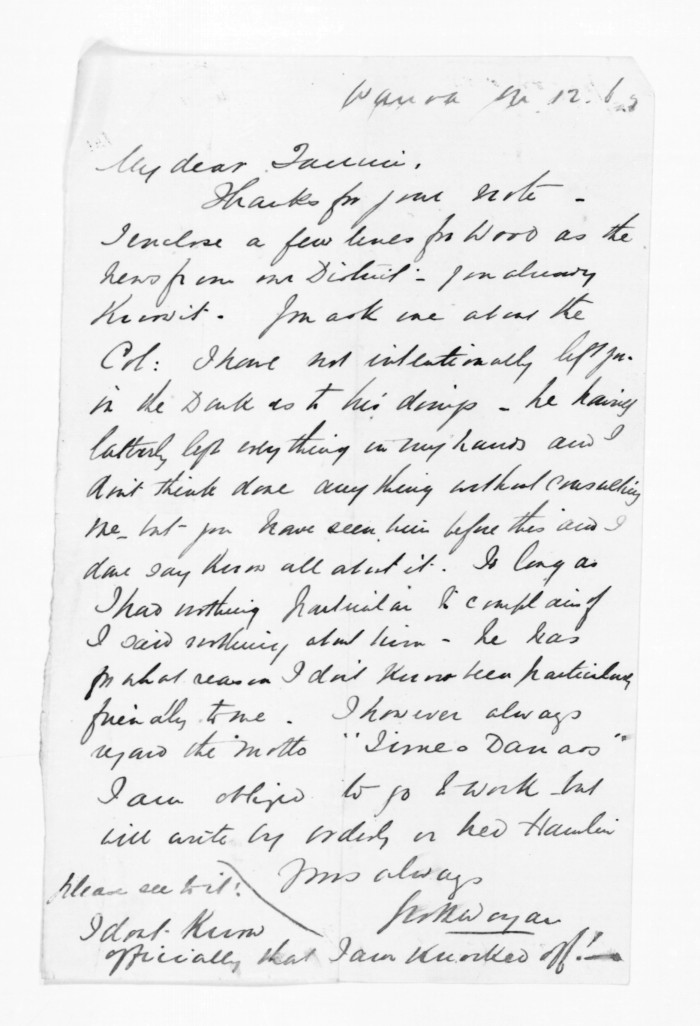 Wairoa 12. 6
My dear
Thanks for your note -
I enclose a few lines for Wood as the
news from our District - you already
Know it. You ask me about the
Col: I have not intentionally left you
in the Dark as to his doings - he having
latterly left everything in my hands and I
don't think done anything without consulting
me - but you have seen him before this and I
dare say Know all about it. So long as
I had nothing particular to complain of
I said nothing about him - he has
for what reason I don't Know been particularly
friendly to me. I however always
regard the Motto "Timeo Danaos"
I am obliged to go to work but
will write by orderly or Hamlin
please see to it! Yours always
I dont Know
officially that I am Knocked off! -